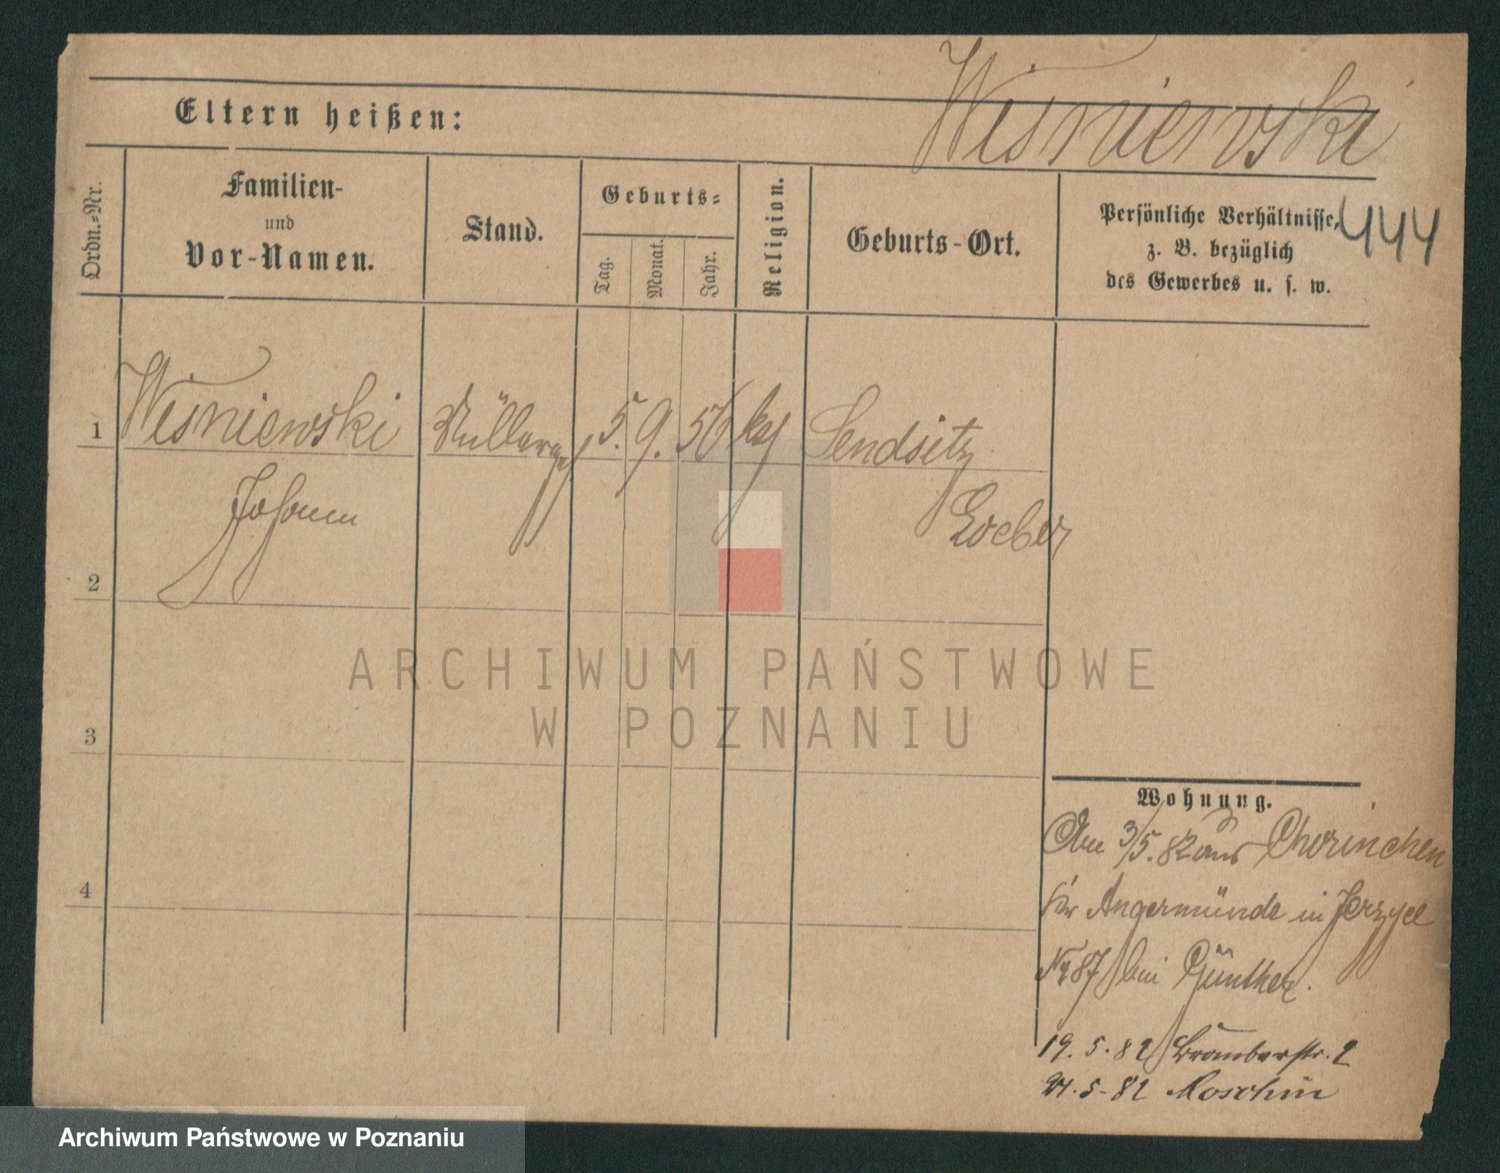 Wisniewski
Eltern heißen:
444
Ordn.-Nr.
Familien-
und
Vor-Namen.
Stand.
Geburts-
Tag.
Monat.
Jahr.
Religion.
Geburts-Ort.
Persönliche Verhältnisse,
z. B. bezüglich
des Gewerbes u. s. w.
1
Wisniewski
Müllerges
5.
9.
56
Sendsitz
Johann
2
3
4
ARCHIWUM PAŃSTWOWE
W POZNANIU
Wohnung.
Am 3/5. 82 aus Chorinchen
Kr Angermünde in Jerzyce
No 87 bei Günther.
19. 5. 82
24. 5. 82 Moschin
Archiwum Państwowe w Poznaniu